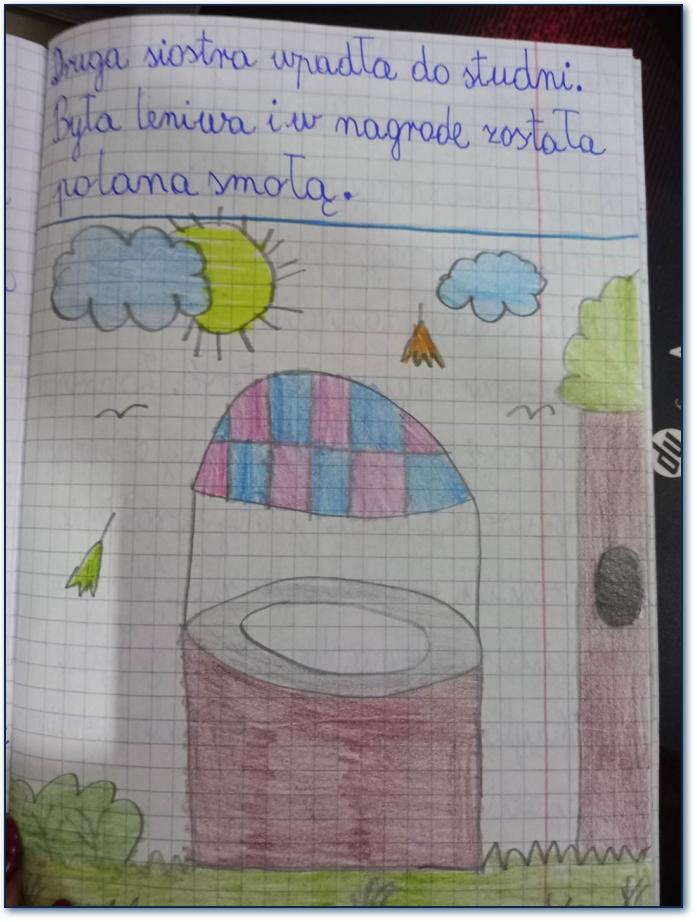 Druga siostra wpadła do studni.
Była leniwa i w nagrode została
polana smołą.
hp